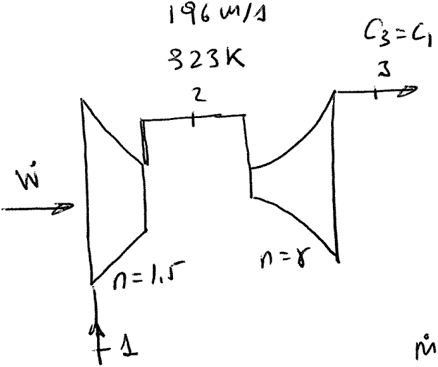 196 m/s
323K
C₃=C₁
3
2
Ẇ
n=1.5
n=γ
1
ṁ